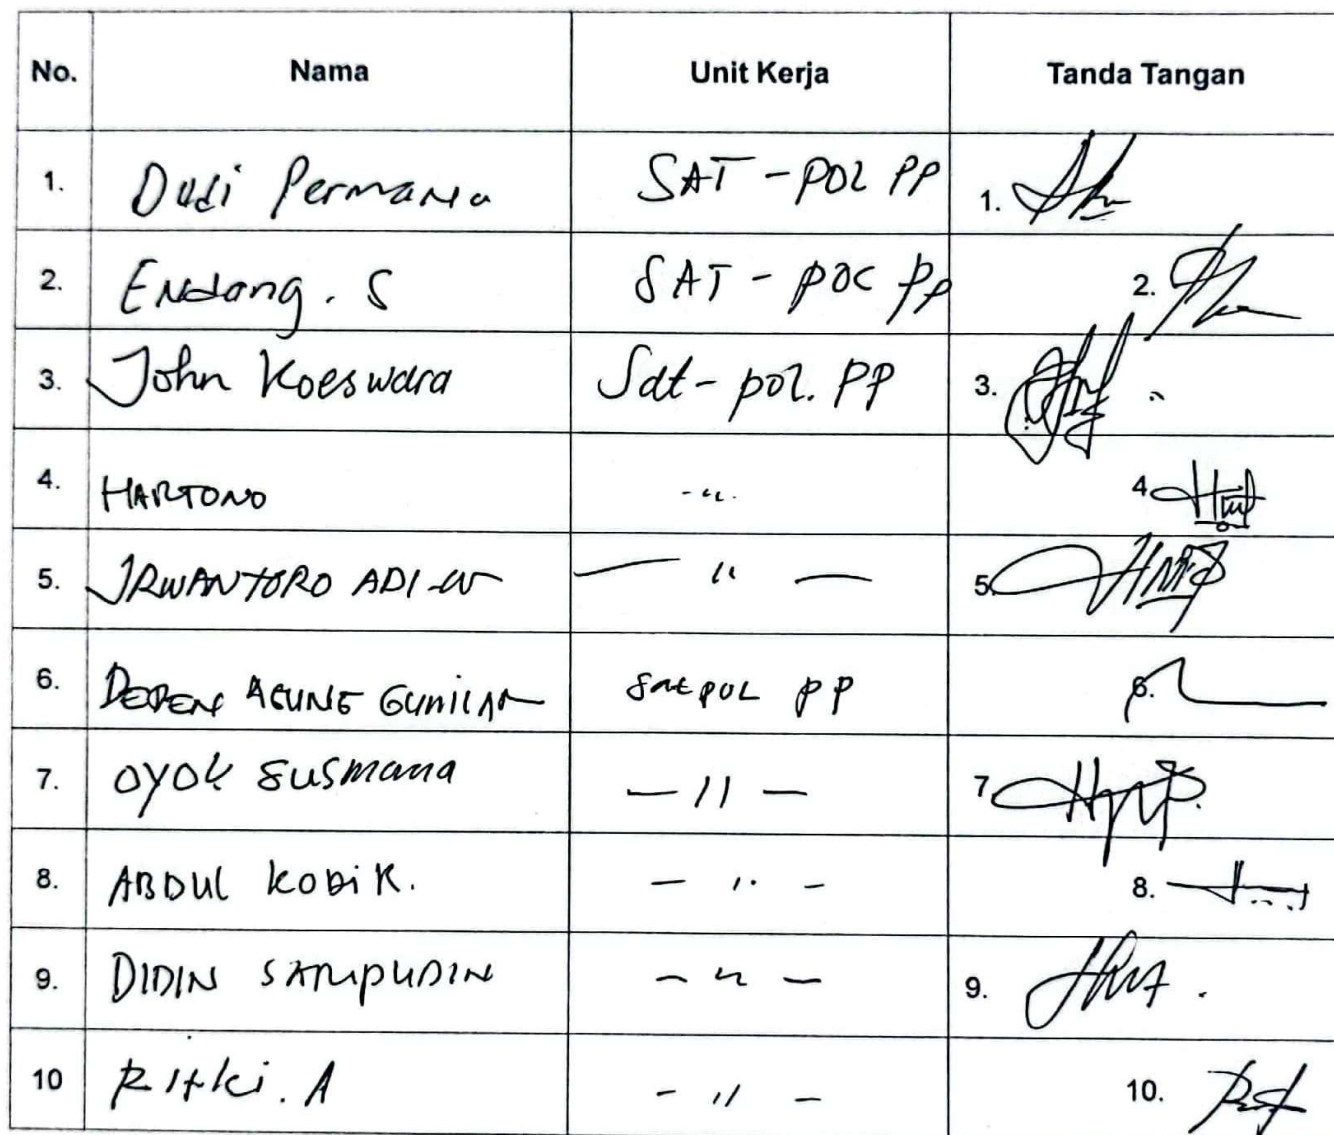 No. Nama Unit Kerja Tanda Tangan
1. Dudi Permana SAT - POL PP 1.
2. Endang . S SAT - POL PP 2.
3. John Koeswara Sat - pol. PP 3.
4. HARTONO - " - 4
5. IRWANTORO ADI .W — " — 5.
6. DEDEN AGUNG GUMILAR satpol PP 6.
7. OYOK SUSMANA — " — 7
8. ABDUL KODIR. - " - 8.
9. DIDIN SARIPUDIN - " - 9.
10 Rifki . A - " - 10.